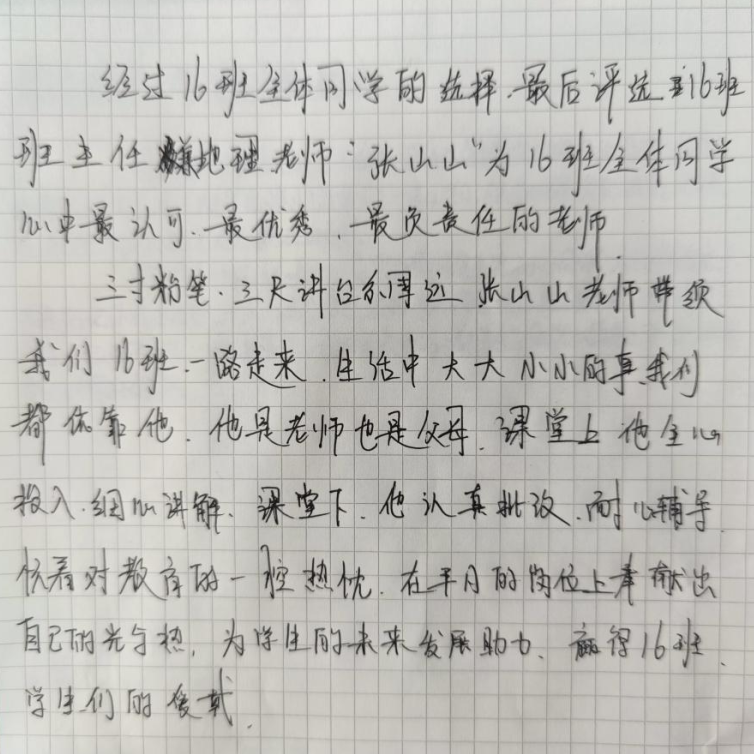 经过16班全体同学的选择.最后评选 16班
班主任兼地理老师:“张山山”为16班全体同学
心中最认可.最优秀.最负责任的老师.
三寸粉笔.三尺讲台 张山山老师带领
我们16班.一路走来.生活中大大小小的事.我们
都依靠他.他是老师也是父母.课堂上他全心
投入.细心讲解.课堂下.他认真批改.耐心辅导.
怀着对教育的一腔热忱.在平凡的岗位上奉献出
自己的光与热,为学生的未来发展助力、赢得16班.
学生们的爱戴.